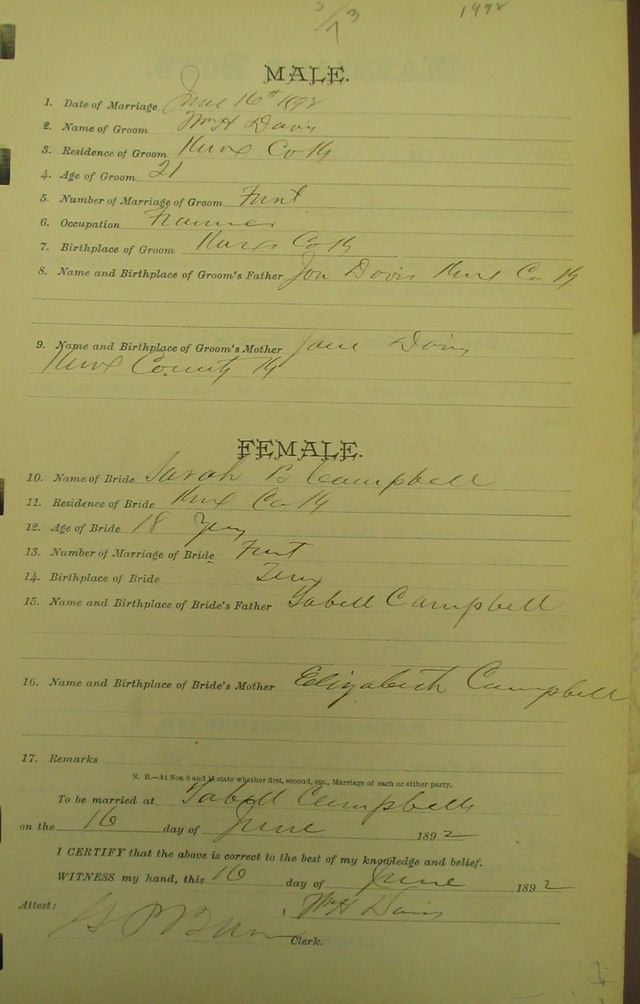 1892
MALE.
1. Date of Marriage June 16th 1892
2. Name of Groom Wm H Davis
3. Residence of Groom Knox Co Ky
4. Age of Groom 21
5. Number of Marriage of Groom First
6. Occupation Farmer
7. Birthplace of Groom Knox Co Ky
8. Name and Birthplace of Groom's Father Jon Davis Knox Co Ky
9. Name and Birthplace of Groom's Mother Jane Davis
Knox County Ky
FEMALE.
10. Name of Bride. Sarah B Campbell
11. Residence of Bride Knox Co Ky
12. Age of Bride 18 Years
13. Number of Marriage of Bride First
14. Birthplace of Bride Tenn
15. Name and Birthplace of Bride's Father Campbell
16. Name and Birthplace of Bride's Mother Elizabeth Campbell
17. Remarks
N. B.—At Nos. 5 and 13 state whether first, second, etc., Marriage of each or either party.
To be married at Campbells
on the 16 day of June 1892
I CERTIFY that the above is correct to the best of my knowledge and belief.
WITNESS my hand, this 16 day of June 1892
Attest: Wm H Davis
Clerk.